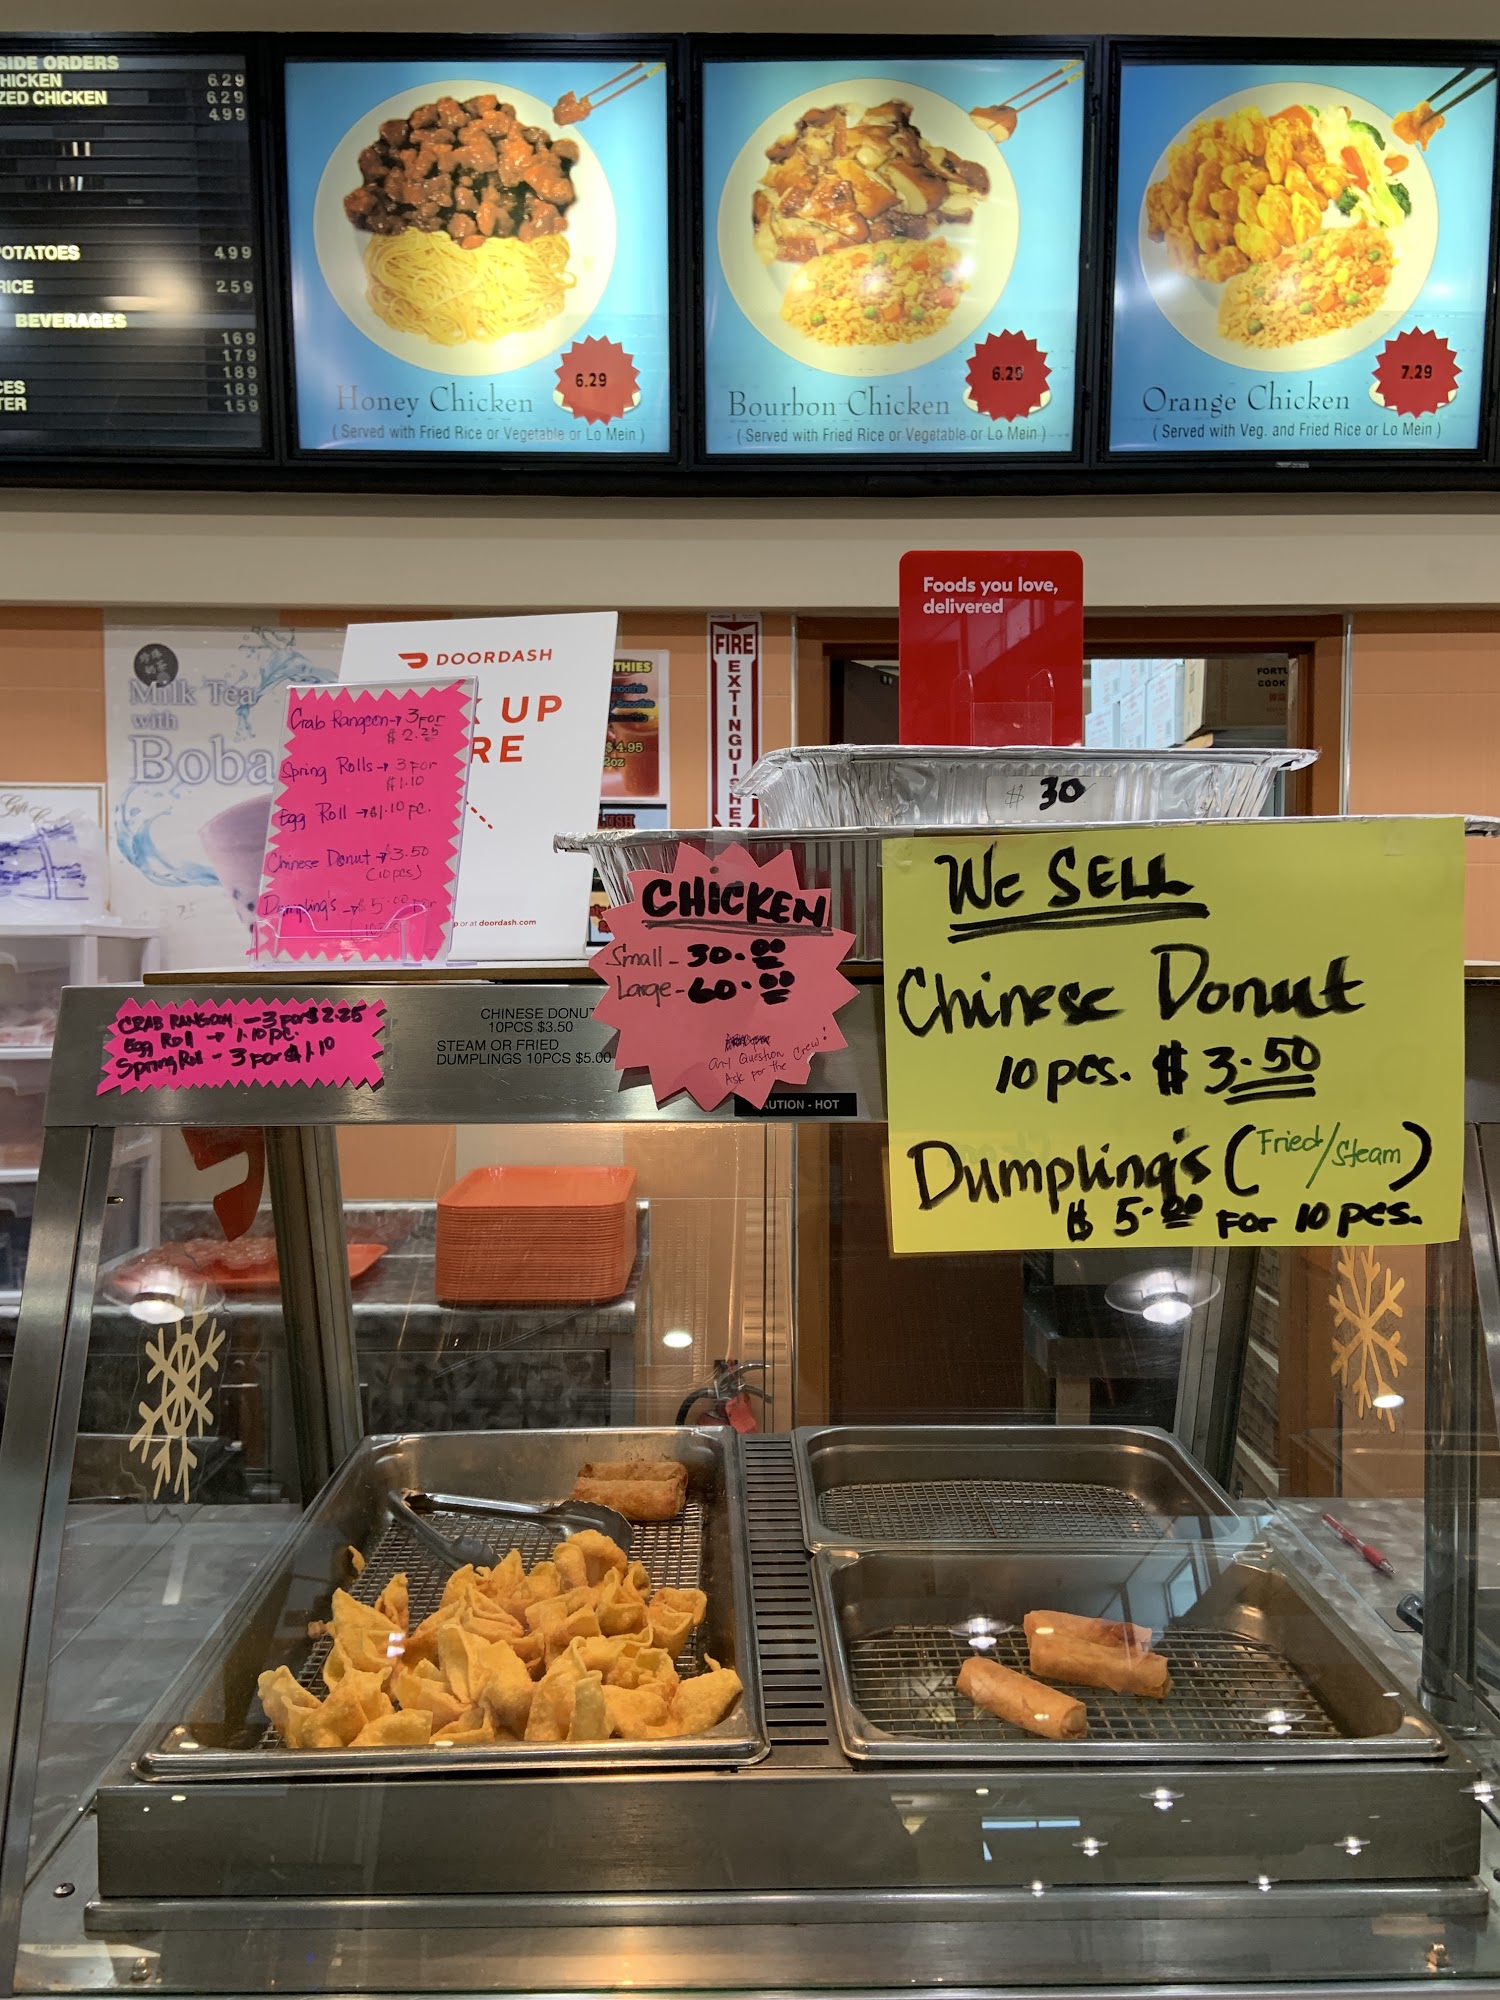 SIDE ORDERS
CHICKEN 6.29
ZED CHICKEN 6.29
4.99
POTATOES 4.99
RICE 2.59
BEVERAGES
1.69
1.79
1.89
CES 1.89
TER 1.59
Honey Chicken
6.29
( Served with Fried Rice or Vegetable or Lo Mein )
Bourbon Chicken
6.29
( Served with Fried Rice or Vegetable or Lo Mein )
Orange Chicken
7.29
( Served with Veg. and Fried Rice or Lo Mein )
Foods you love,
delivered
Milk Tea
with
Boba
DOORDASH
K UP
RE
p or at doordash.com
THIES
$ 4.95
FIRE
EXTINGUISHER
FORTU
COOK
Crab Rangoon → 3 FOR
$ 2.25
Spring Rolls → 3 FOR
$1.10
Egg Roll → $1.10 pc.
Chinese Donut → $3.50
(10pcs)
Dumpling's → $5.00 per
$ 30
CHICKEN
Small - 30.00
Large - 60.00
any Question
Ask for the Crew!
WE SELL
Chinese Donut
10 pcs. $ 3.50
Dumpling's (Fried/Steam)
$ 5.00 FOR 10 pcs.
CRAB RANGOON — 3 FOR $ 2.25
Egg Roll → 1.10 pc.
Spring Roll - 3 FOR $1.10
CHINESE DONUT
10PCS $3.50
STEAM OR FRIED
DUMPLINGS 10PCS $5.00
CAUTION - HOT